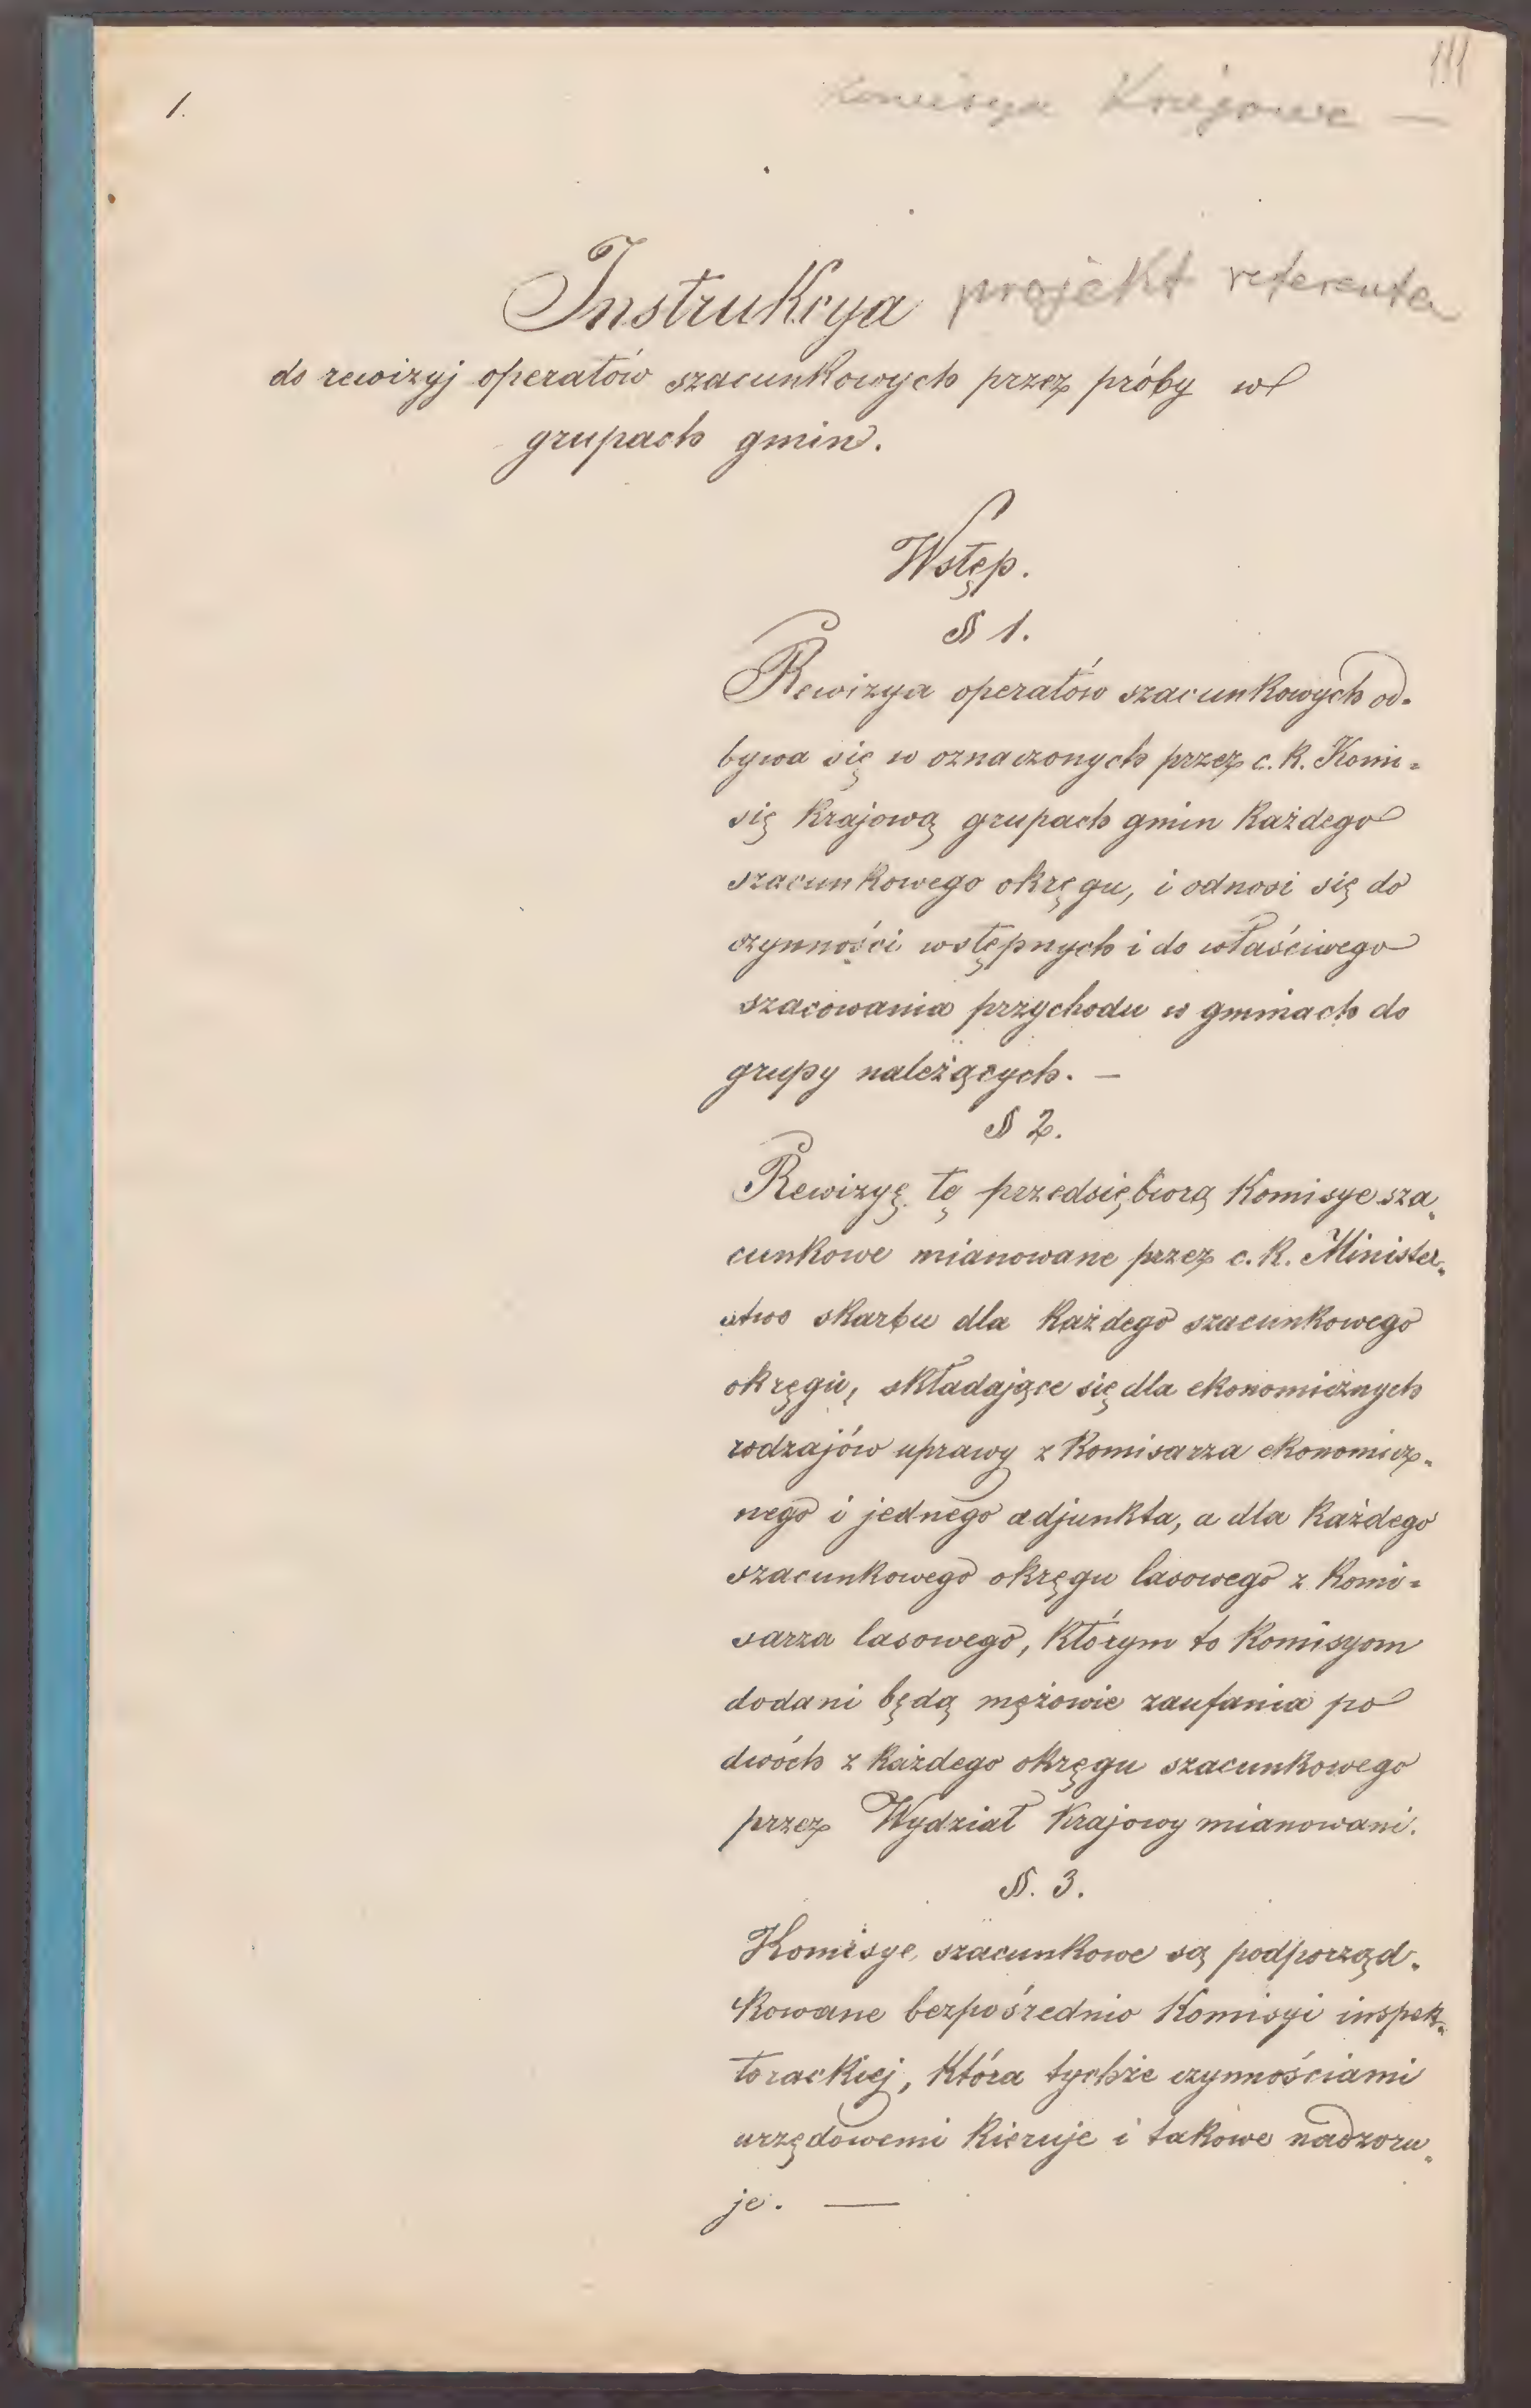 111
1.
Komisya Krajowa —
Instrukcya projekt referenta
do rewizyj operatów szacunkowych przez próby w
grupach gmin.
Wstęp.
§ 1.
Rewizya operatów szacunkowych od-
bywa się w oznaczonych przez c. k. Komi-
się krajową grupach gmin każdego
szacunkowego okręgu, i odnosi się do
czynności wstępnych i do właściwego
szacowania przychodu w gminach do
grupy należących. —
§ 2.
Rewizyę tę przedsiębiorą Komisye sza-
cunkowe mianowane przez c. k. Minister-
stwo skarbu dla każdego szacunkowego
okręgu, składające się dla ekonomicznych
rodzajów uprawy z Komisarza ekonomicz-
nego i jednego adjunkta, a dla każdego
szacunkowego okręgu lasowego z Komi-
sarza lasowego, którym to Komisyom
dodani będą mężowie zaufania po
dwóch z każdego okręgu szacunkowego
przez Wydział krajowy mianowani.
§. 3.
Komisye szacunkowe są podporząd-
kowane bezpośrednio Komisyi inspek-
torackiej, która tychże czynnościami
urzędowemi kieruje i takowe nadzoru-
je. —